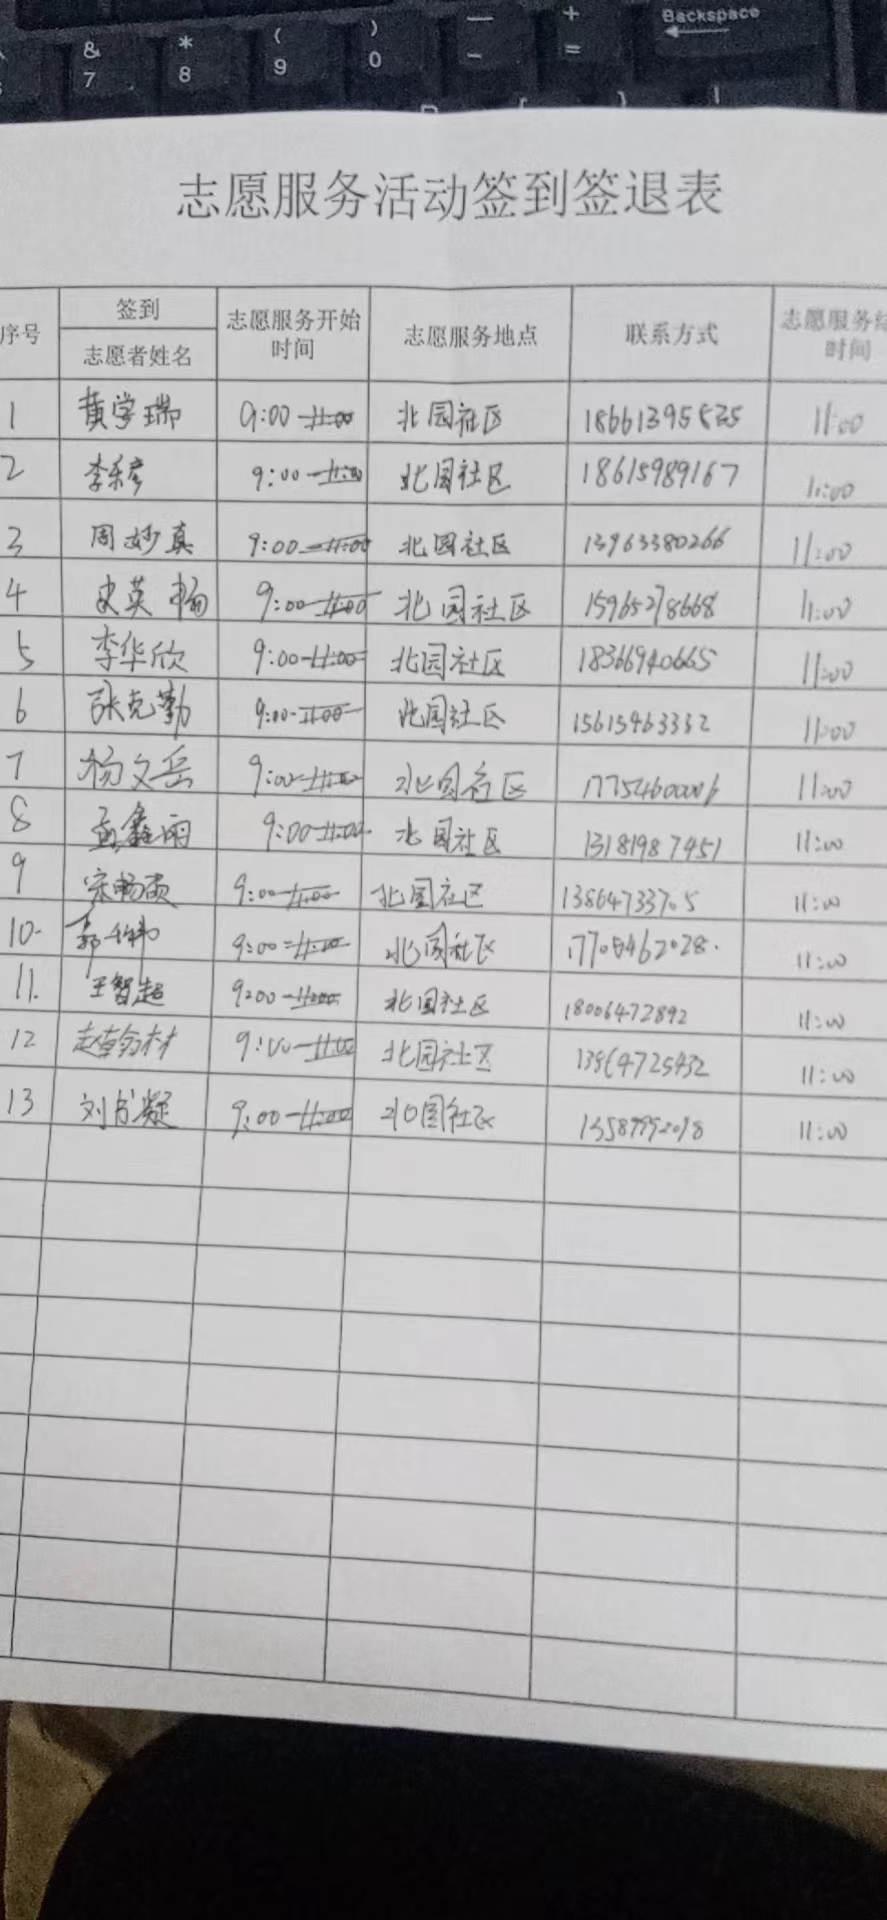 Backspace
& * ( ) — +
7 8 9 0 - =
志愿服务活动签到签退表
序号 签到 志愿者姓名 志愿服务开始时间 志愿服务地点 联系方式 志愿服务结 时间
1 黄学瑞 9:00-11:00 北园社区 18661395535 11:00
2 李彩彦 9:00-11:00 北园社区 18615989167 11:00
3 周妙真 9:00-11:00 北园社区 13963380266 11:00
4 史英畅 9:00-11:00 北园社区 15965278668 11:00
5 李华欣 9:00-11:00 北园社区 18366940665 11:00
6 张克勤 9:00-11:00 北园社区 15615463332 11:00
7 杨文岳 9:00-11:00 北园社区 17754600006 11:00
8 孟鑫雨 9:00-11:00 北园社区 13181987451 11:00
9 宋畅 9:00-11:00 北园社区 11:00
10. 郭 9:00-11:00 北园社区 17705462028. 11:00
11. 王智超 9:00-11:00 北园社区 18006472892 11:00
12 赵 9:00-11:00 北园社区 13964725432 11:00
13 刘书凝 9:00-11:00 北园社区 11:00